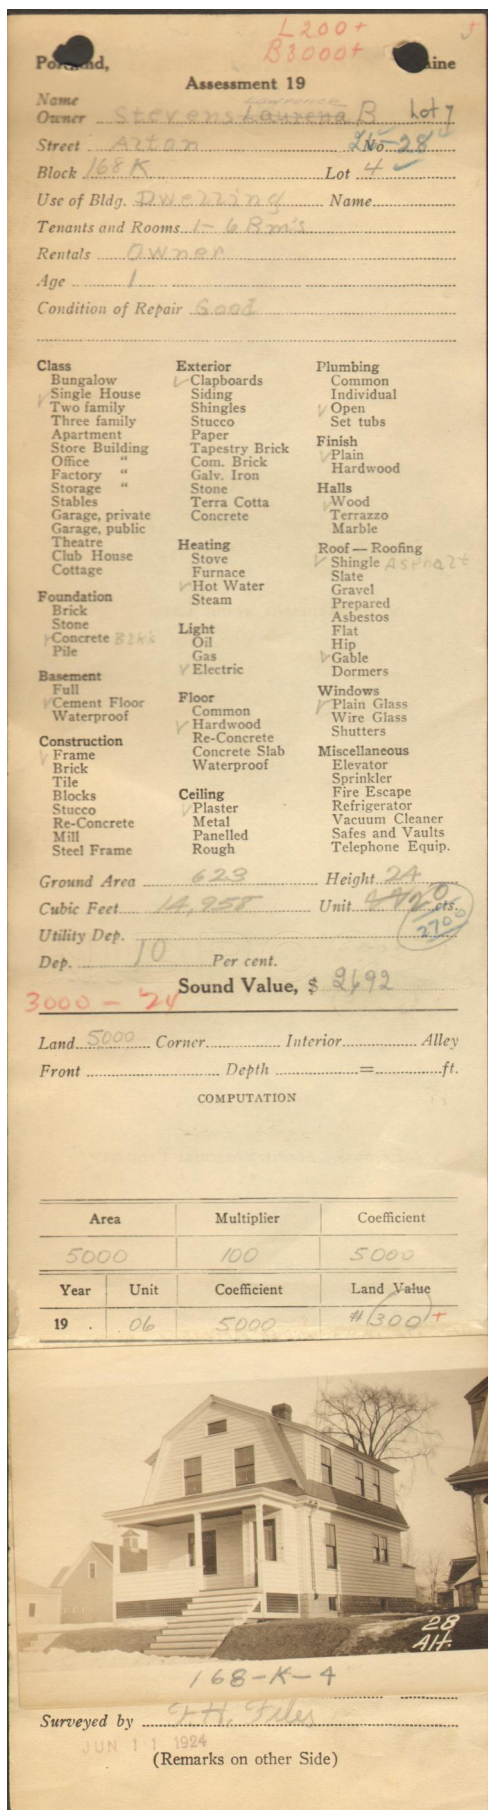 L200+
B3000+
Portland, Maine
Assessment 19
Name
Lawrence
Owner Stevens Laurena B Lot 7
Street Alton No. 28
Block 168K Lot 4
Use of Bldg. Dwelling Name
Tenants and Rooms 1-6 Rm's
Rentals Owner
Age 1
Condition of Repair Good
Class
Bungalow
Single House
Two family
Three family
Apartment
Store Building
Office "
Factory "
Storage "
Stables
Garage, private
Garage, public
Theatre
Club House
Cottage
Foundation
Brick
Stone
Concrete Blk's
Pile
Basement
Full
Cement Floor
Waterproof
Construction
Frame
Brick
Tile
Blocks
Stucco
Re-Concrete
Mill
Steel Frame
Exterior
Clapboards
Siding
Shingles
Stucco
Paper
Tapestry Brick
Com. Brick
Galv. Iron
Stone
Terra Cotta
Concrete
Heating
Stove
Furnace
Hot Water
Steam
Light
Oil
Gas
Electric
Floor
Common
Hardwood
Re-Concrete
Concrete Slab
Waterproof
Ceiling
Plaster
Metal
Panelled
Rough
Plumbing
Common
Individual
Open
Set tubs
Finish
Plain
Hardwood
Halls
Wood
Terrazzo
Marble
Roof — Roofing
Shingle Asphalt
Slate
Gravel
Prepared
Asbestos
Flat
Hip
Gable
Dormers
Windows
Plain Glass
Wire Glass
Shutters
Miscellaneous
Elevator
Sprinkler
Fire Escape
Refrigerator
Vacuum Cleaner
Safes and Vaults
Telephone Equip.
Ground Area 623 Height 24
Cubic Feet 14,958 Unit 20 cts.
2700
Utility Dep.
Dep. 10 Per cent.
Sound Value, $ 2692
3000 - '24
Land 5000 Corner Interior Alley
Front Depth = ft.
COMPUTATION
Area Multiplier Coefficient
5000 100 5000
Year Unit Coefficient Land Value
19 . 06 5000 # 300 +
28
Alt.
168-K-4
Surveyed by F.H. Files
JUN 11 1924
(Remarks on other Side)